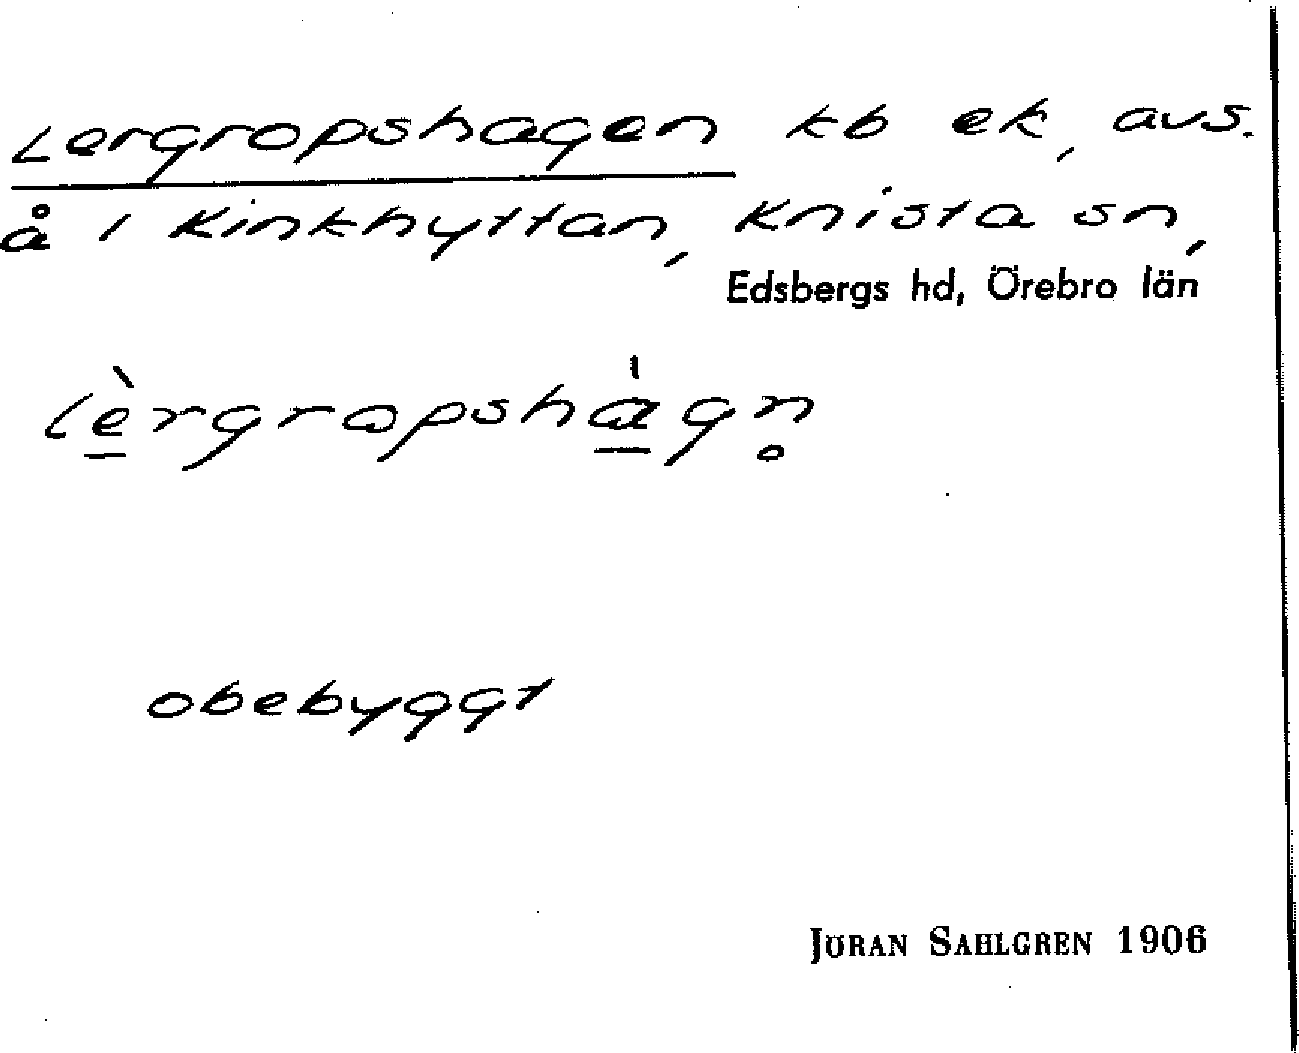 Lergropshagen kb ek, avs.
å i Kinkhyttan, Knista sn,
Edsbergs hd, Örebro län
lèrgrapshàgn̥
obebyggt
JÖRAN SAHLGREN 1906